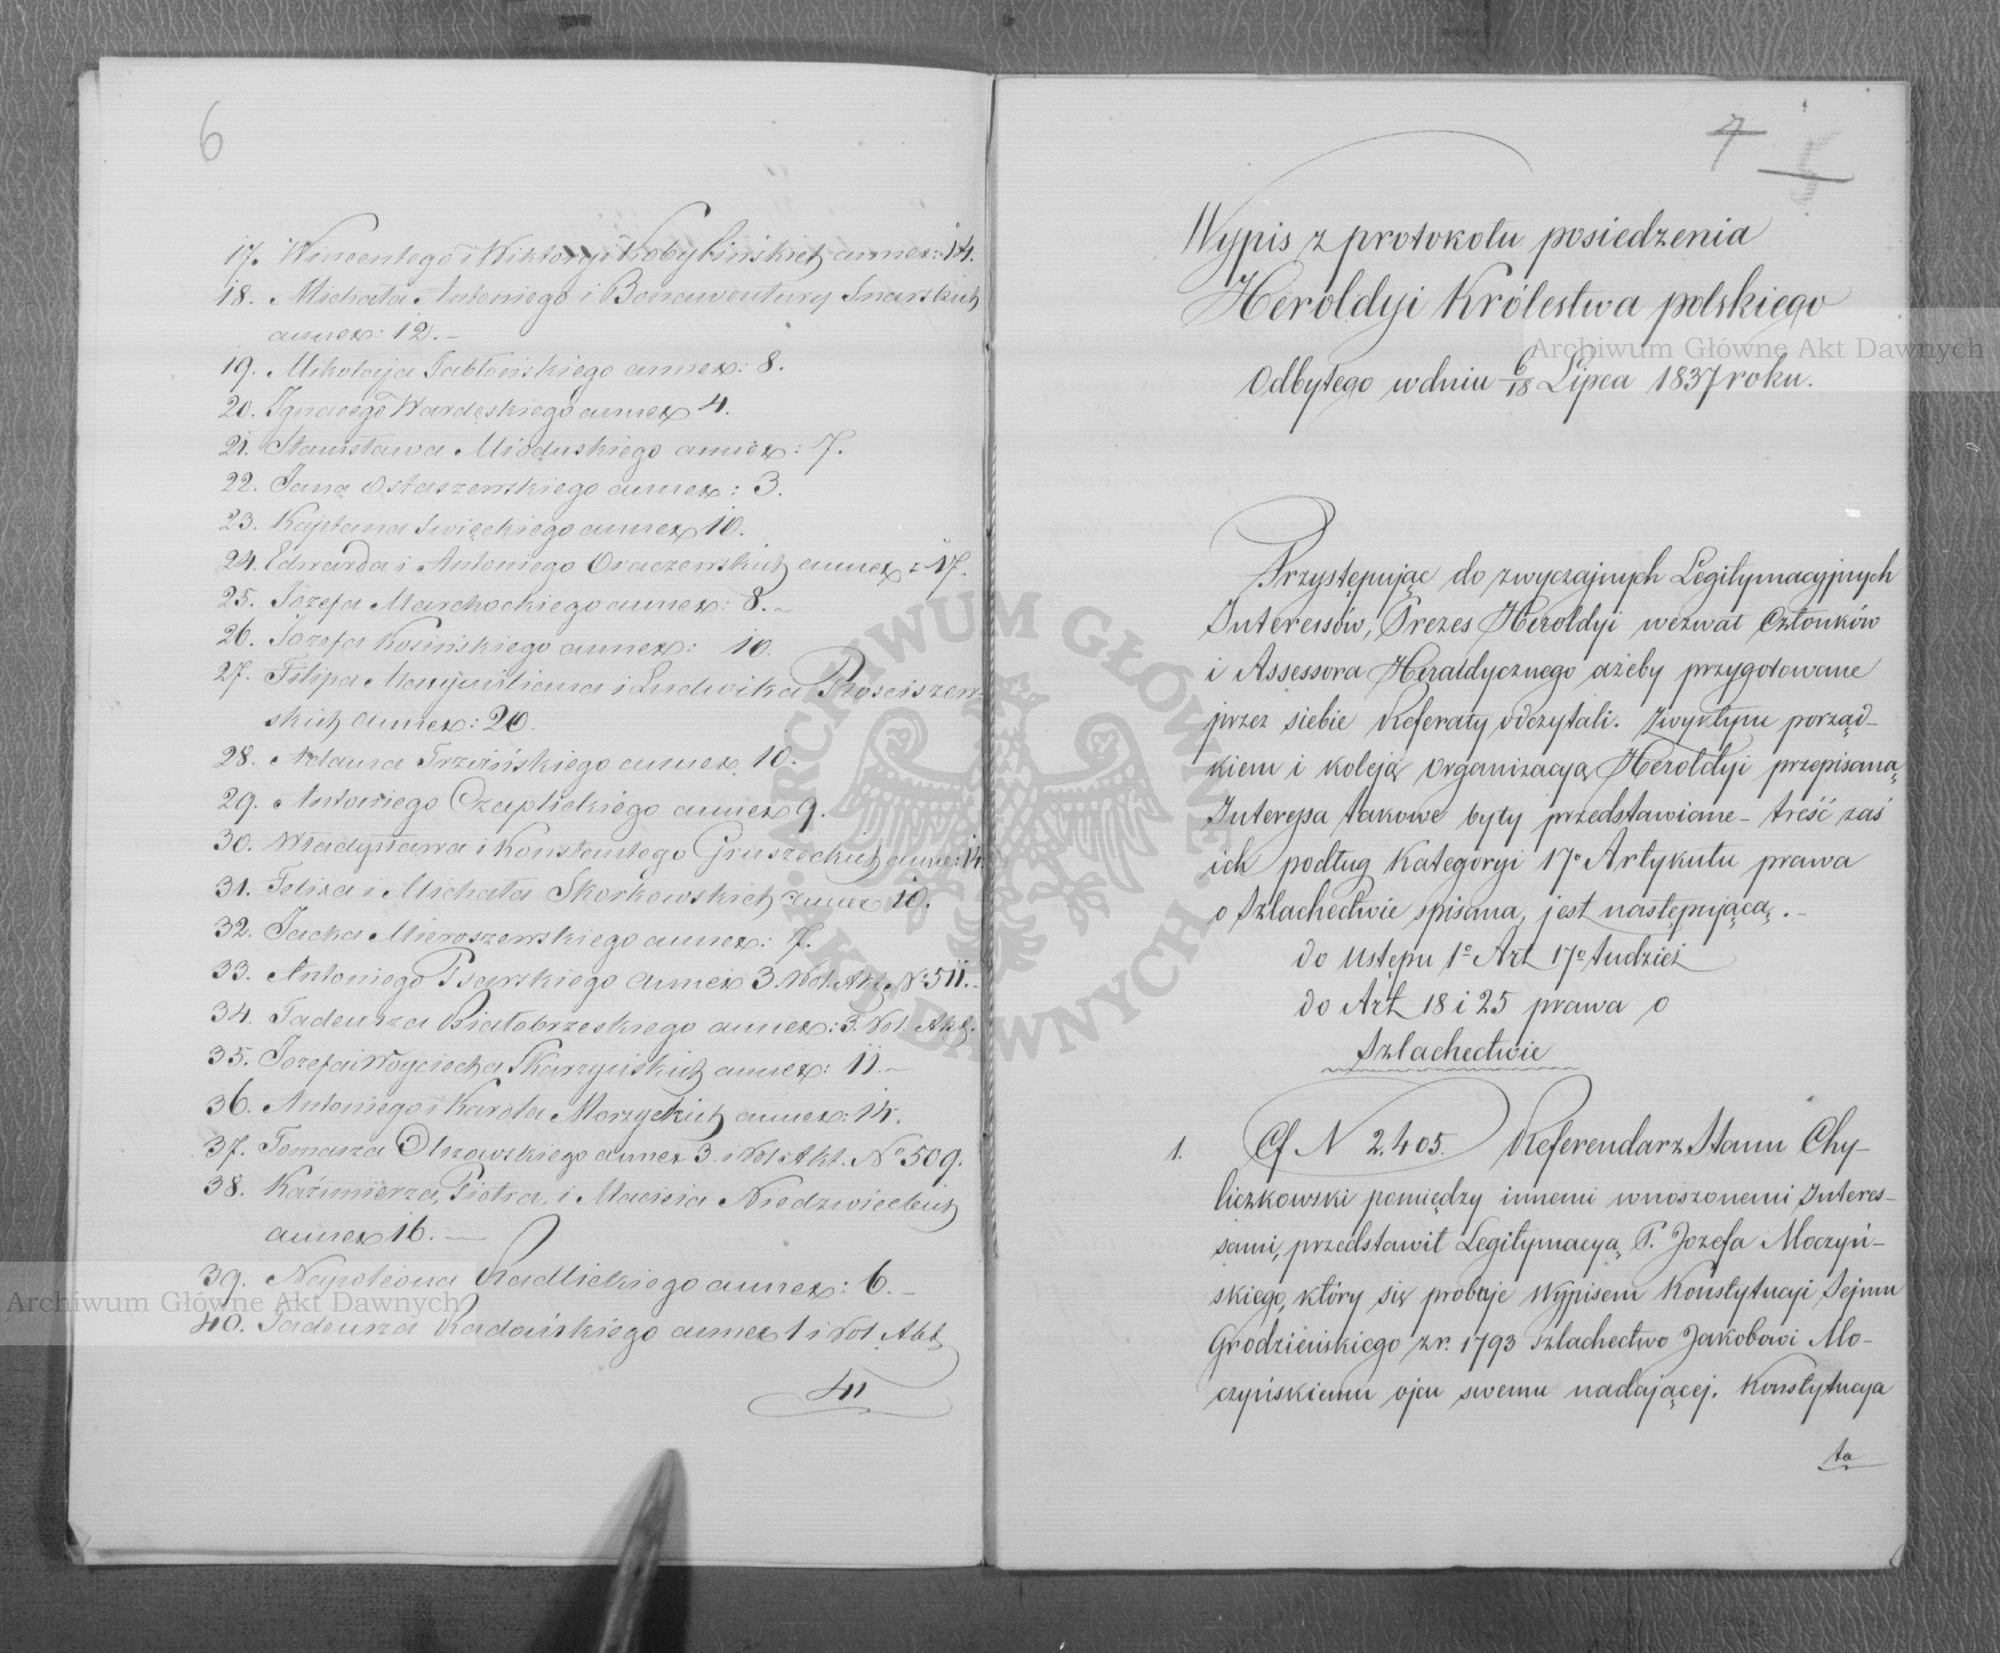 6
17. Wincentego i Wiktoryi Kobylińskich annex: 14.
18. Michała Antoniego i Bonawentury Snarskich
annex: 12. –
19. Mikołaja Jabłońskiego annex: 8.
20. Ignacego Wardęskiego annex 4.
21. Stanisława Mioduskiego annex: 7.
22. Jana Ostaszewskiego annex: 3.
23. Kajetana Święckiego annex 10.
24. Edwarda i Antoniego Oraczewskich annex = 17.
25. Józefa Marchockiego annex: 8. –
26. Józefa Kosińskiego annex: 10.
27. Filipa Maxymiliana i Ludwika Rosciszew-
skich annex: 20.
28. Adama Trzcińskiego annex 10.
29. Antoniego Czaplickiego annex 9.
30. Władysława i Konstantego Gruszeckich anne: 14
31. Felixa i Michała Skorkowskich annex 10.
32. Jacka Mieroszewskiego annex: 7.
33. Antoniego Psarskiego annex 3. Vol. Akt N° 511. –
34. Tadeusza Białobrzeskiego annex: 3. Vol Akt.
35. Józefa i Woyciecha Skarzyńskich annex: 11. –
36. Antoniego i Karola Morzyckich annex: 14.
37. Tomasza Olszowskiego annex 3. i Vol: Akt. N° 509.
38. Kaźimierza, Piotra, i Macieia Niedzwieckich
annex 16. –
39. Napoleona Radlickiego annex: 6. –
40. Tadeusza Radońskiego annex 1 i Vol Akt
7
5
Wypis z protokołu posiedzenia
Heroldyi Królestwa polskiego
Odbytego w dniu 6/18 Lipca 1837 roku.
Przystępując do zwyczajnych Legitymacyjnych
Interessów, Prezes Heroldyi wezwał Członków
i Assessora Heraldycznego ażeby przygotowane
przez siebie Referaty odczytali. Zwykłym porząd-
kiem i koleją organizacyą Heroldyi przepisaną
Interessa takowe były przedstawione – treść zaś
ich podług Kategoryi 17° Artykułu prawa
o Szlachectwie spisana, jest następującą. –
do Ustępu 1° Art 17° tudzież
do Art 18 i 25 prawa o
Szlachectwie
1. Cf N 2.405. Referendarz Stanu Chy-
liczkowski pomiędzy innemi wnoszonemi Interes-
sami, przedstawił Legitymacyą P. Józefa Moczyń-
skiego, który się probuje Wypisem Konstytucyi Sejmu
Grodzieńskiego z r. 1793 szlachectwo Jakobowi Mo-
czyńskiemu ojcu swemu nadającej. Konstytucya
ta
Archiwum Główne Akt Dawnych
Archiwum Główne Akt Dawnych
ARCHIWUM GŁÓWNE AKT DAWNYCH